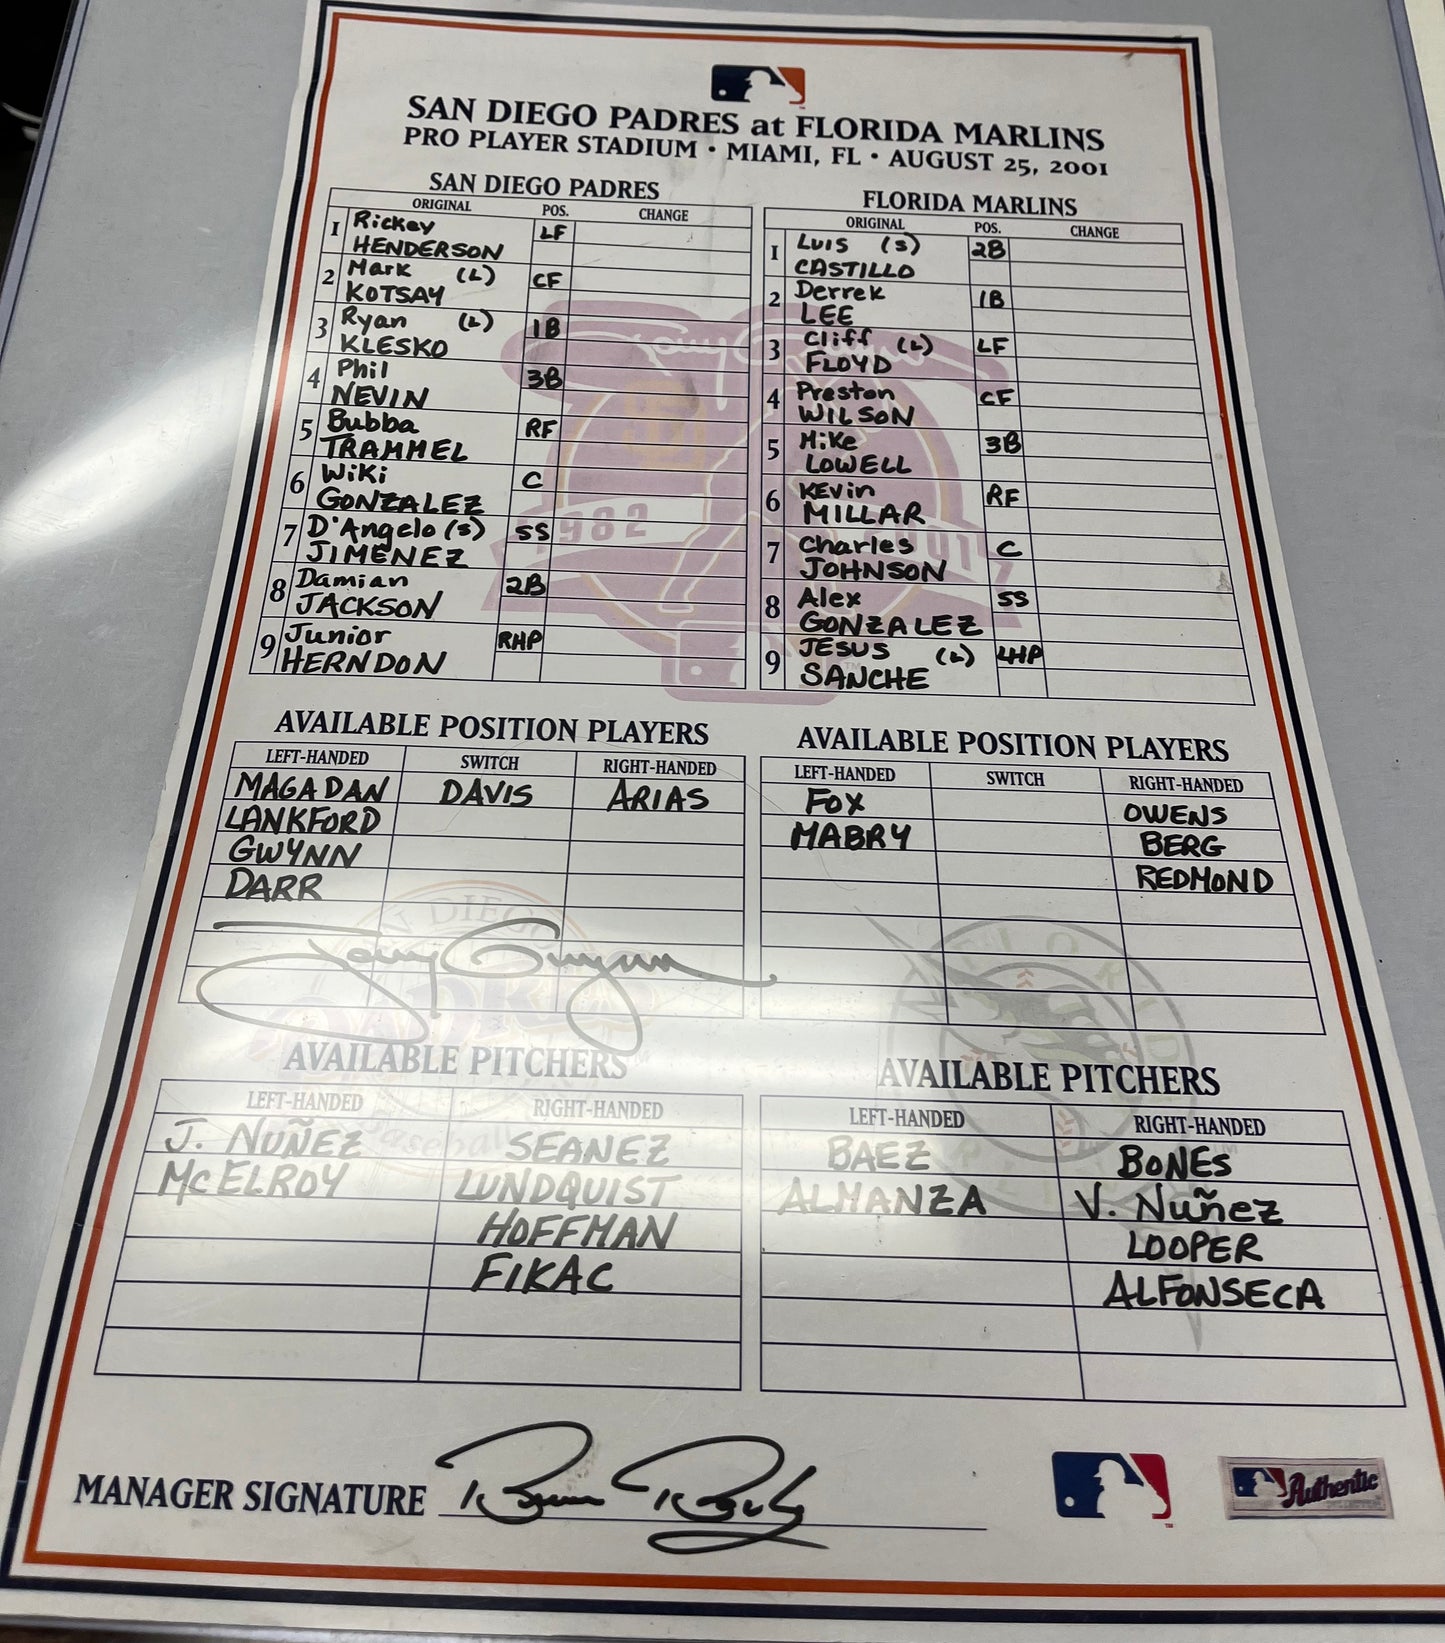 SAN DIEGO PADRES at FLORIDA MARLINS
PRO PLAYER STADIUM • MIAMI, FL • AUGUST 25, 2001
SAN DIEGO PADRES
ORIGINAL POS. CHANGE
1 Rickey HENDERSON LF
2 Mark (L) KOTSAY CF
3 Ryan (L) KLESKO 1B
4 Phil NEVIN 3B
5 Bubba TRAMMEL RF
6 Wiki GONZALEZ C
7 D'Angelo (S) JIMENEZ SS
8 Damian JACKSON 2B
9 Junior HERNDON RHP
FLORIDA MARLINS
ORIGINAL POS. CHANGE
1 Luis (S) CASTILLO 2B
2 Derrek LEE 1B
3 Cliff (L) FLOYD LF
4 Preston WILSON CF
5 Mike LOWELL 3B
6 Kevin MILLAR RF
7 Charles JOHNSON C
8 Alex GONZALEZ SS
9 JESUS (L) SANCHE LHP
1982 2001
AVAILABLE POSITION PLAYERS
LEFT-HANDED SWITCH RIGHT-HANDED
MAGADAN DAVIS ARIAS
LANKFORD
GWYNN
DARR
Tony Gwynn
SAN DIEGO
PADRES
Baseball
AVAILABLE POSITION PLAYERS
LEFT-HANDED SWITCH RIGHT-HANDED
FOX OWENS
MABRY BERG
REDMOND
FLORIDA
AVAILABLE PITCHERS
LEFT-HANDED RIGHT-HANDED
J. NUÑEZ SEANEZ
McELROY LUNDQUIST
HOFFMAN
FIKAC
AVAILABLE PITCHERS
LEFT-HANDED RIGHT-HANDED
BAEZ BONES
ALMANZA V. Nuñez
LOOPER
ALFONSECA
MANAGER SIGNATURE
Authentic